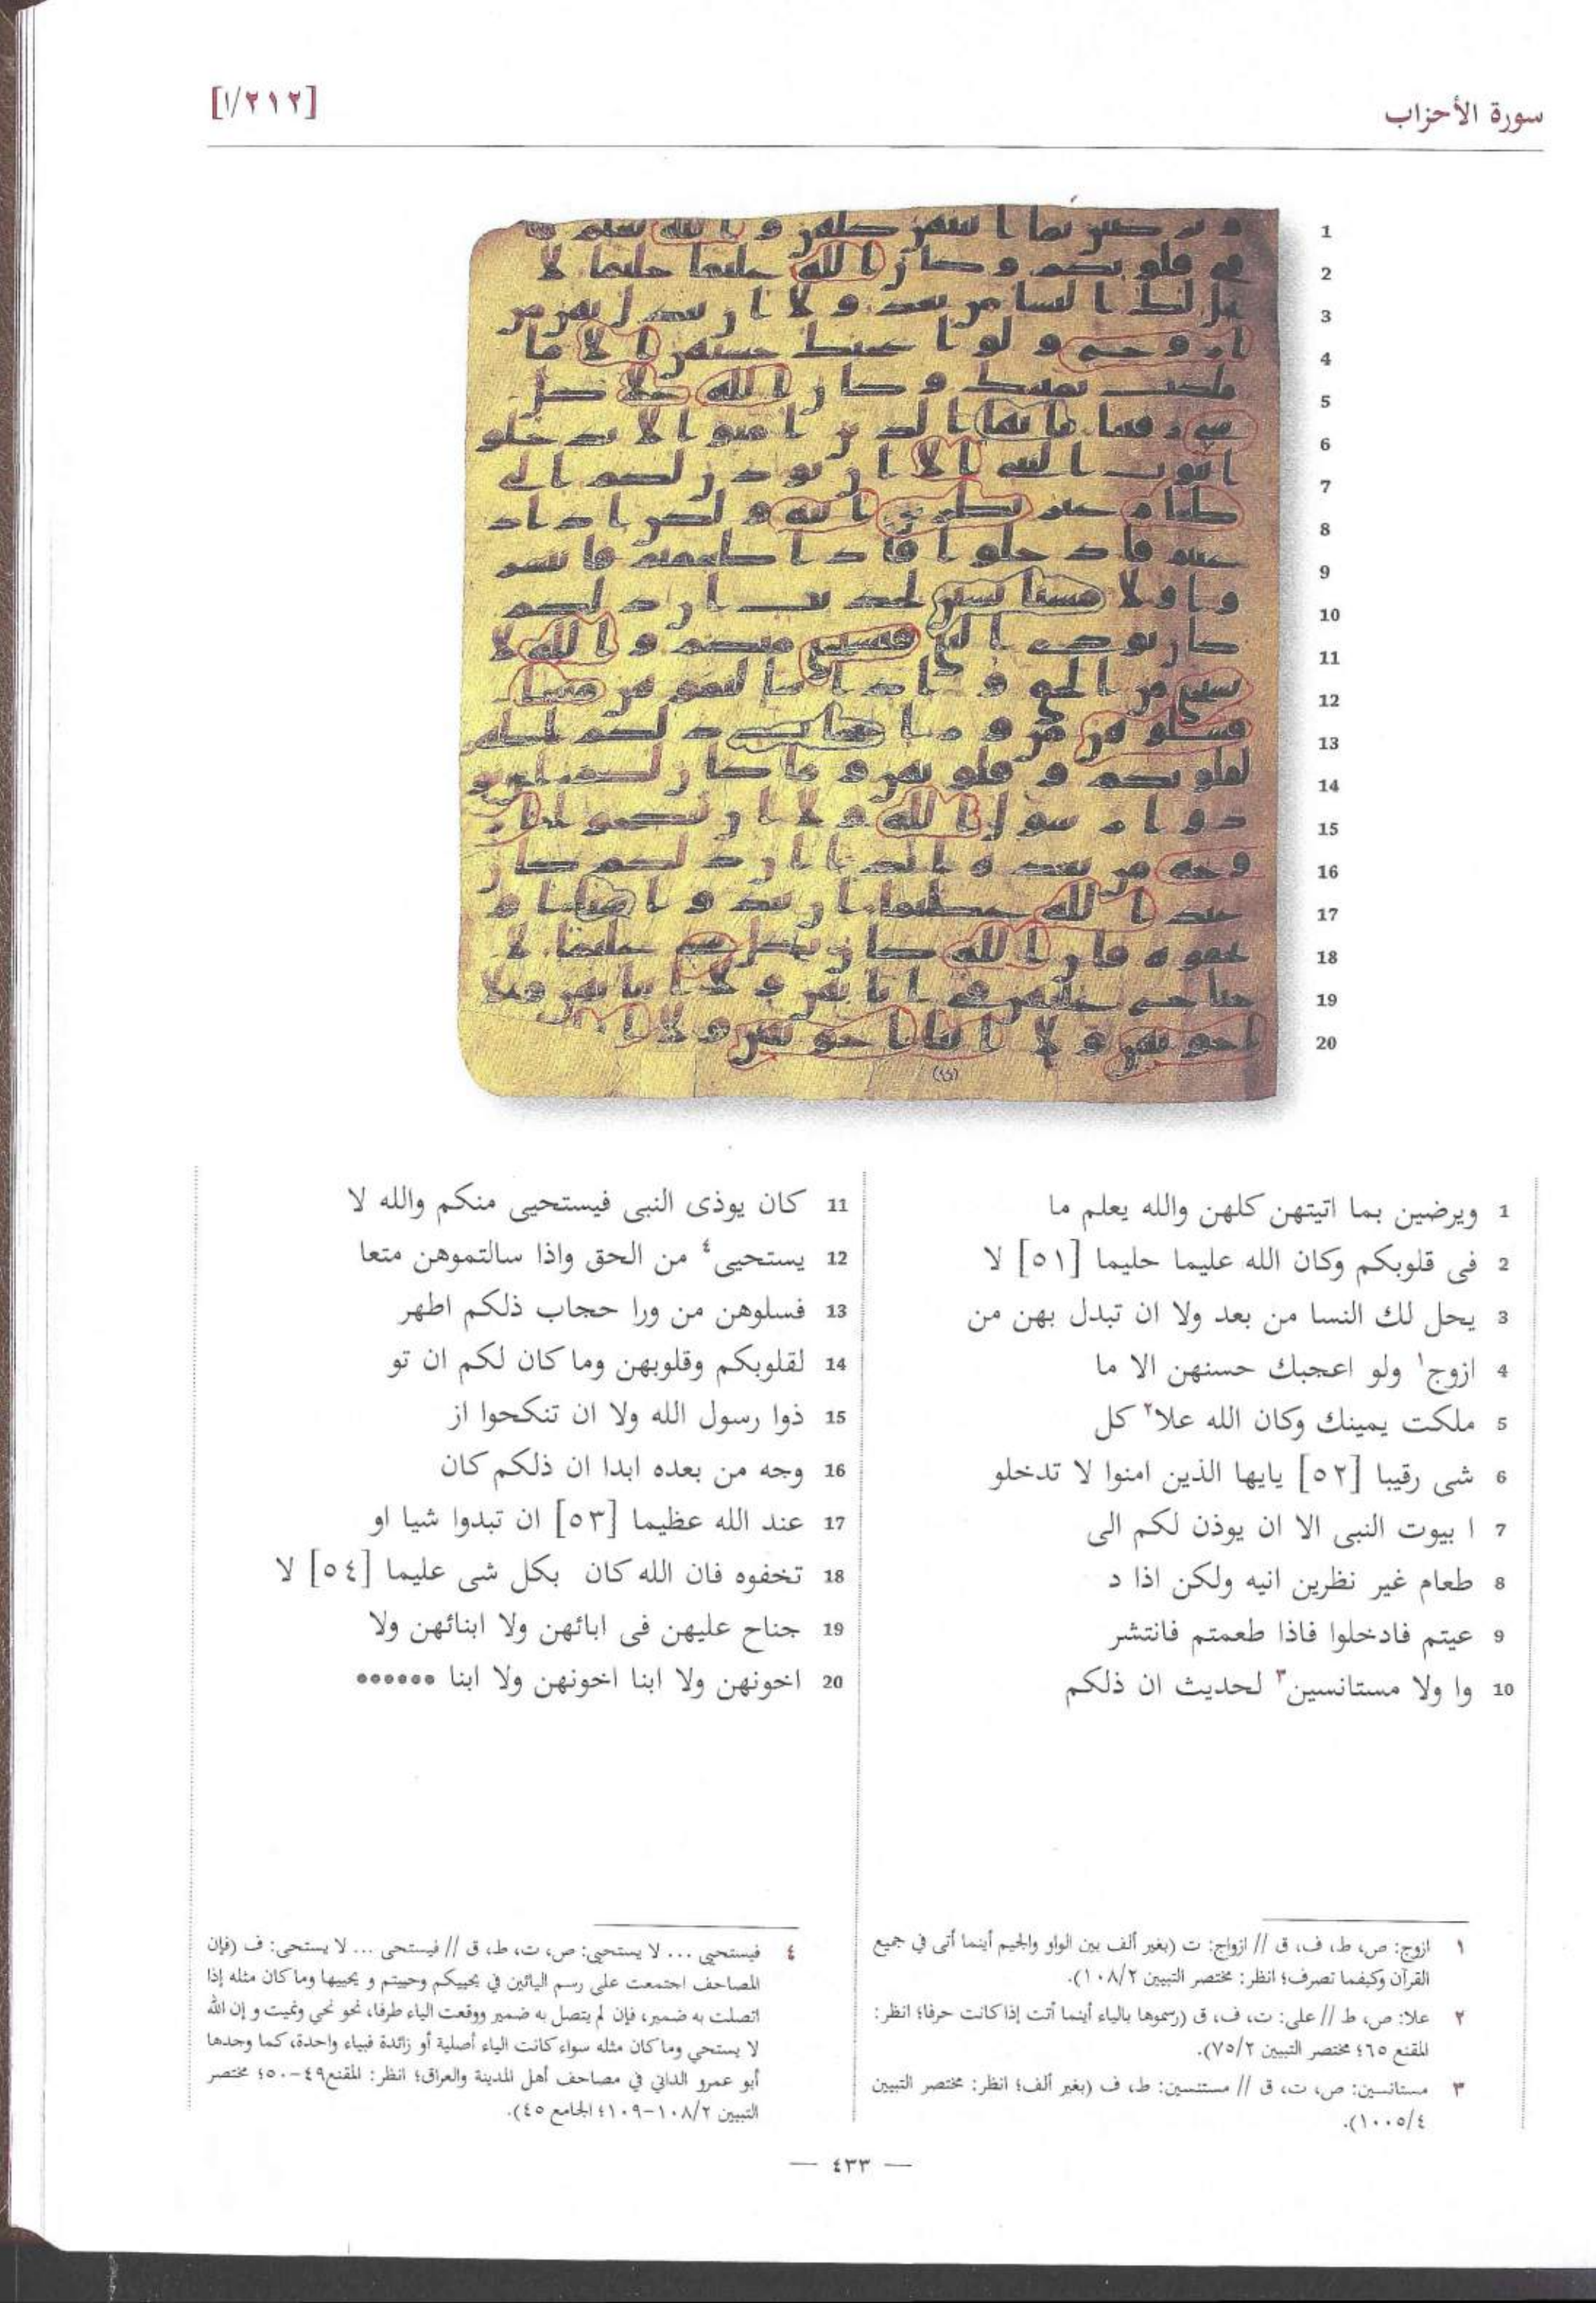 سورة الأحزاب
[٢١٢/١]
1 ويرضين بما اتيتهن كلهن والله يعلم ما
2 فى قلوبكم وكان الله عليما حليما [٥١] لا
3 يحل لك النسا من بعد ولا ان تبدل بهن من
4 ازوج١ ولو اعجبك حسنهن الا ما
5 ملكت يمينك وكان الله علا٢ كل
6 شى رقيبا [٥٢] يايها الذين امنوا لا تدخلو
7 ا بيوت النبى الا ان يوذن لكم الى
8 طعام غير نظرين انيه ولكن اذا د
9 عيتم فادخلوا فاذا طعمتم فانتشر
10 وا ولا مستانسين٣ لحديث ان ذلكم
11 كان يوذى النبى فيستحيى منكم والله لا
12 يستحيى٤ من الحق واذا سالتموهن متعا
13 فسلوهن من ورا حجاب ذلكم اطهر
14 لقلوبكم وقلوبهن وما كان لكم ان تو
15 ذوا رسول الله ولا ان تنكحوا از
16 وجه من بعده ابدا ان ذلكم كان
17 عند الله عظيما [٥٣] ان تبدوا شيا او
18 تخفوه فان الله كان بكل شى عليما [٥٤] لا
19 جناح عليهن فى ابائهن ولا ابنائهن ولا
20 اخونهن ولا ابنا اخونهن ولا ابنا ••••••
١ ازوج: ص، ط، ف، ق // ازواج: ت (بغير ألف بين الواو والجيم أينما أتى في جميع
القرآن وكيفما تصرف؛ انظر: مختصر التبيين ١٠٨/٢).
٢ علا: ص، ط // على: ت، ف، ق (رسموها بالياء أينما أتت إذا كانت حرفا؛ انظر:
المقنع ٦٥؛ مختصر التبيين ٧٥/٢).
٣ مستانسين: ص، ت، ق // مستنسين: ط، ف (بغير ألف؛ انظر: مختصر التبيين
١٠٠٥/٤).
٤ فيستحيي ... لا يستحيي: ص، ت، ط، ق // فيستحى ... لا يستحى: ف (فإن
المصاحف اجتمعت على رسم اليائين في يحييكم وحييتم و يحييها وما كان مثله إذا
اتصلت به ضمير، فإن لم يتصل به ضمير ووقعت الياء طرفا، نحو نحي ونميت و إن الله
لا يستحي وما كان مثله سواء كانت الياء أصلية أو زائدة فبياء واحدة، كما وجدها
أبو عمرو الداني في مصاحف أهل المدينة والعراق؛ انظر: المقنع ٤٩-٥٠؛ مختصر
التبيين ١٠٨/٢-١٠٩؛ الجامع ٤٥).
— ٤٣٣ —